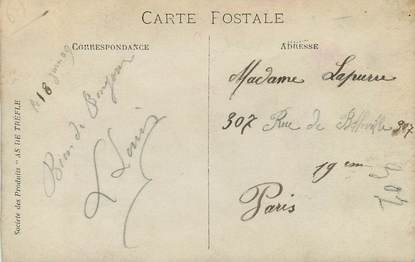 CARTE POSTALE
CORRESPONDANCE
ADRESSE
Société des Produits "AS DE TRÈFLE
le 18
Bien de Bonjour
Louis
Madame Lapierre
307 Rue de Belleville 307
19 em
Paris